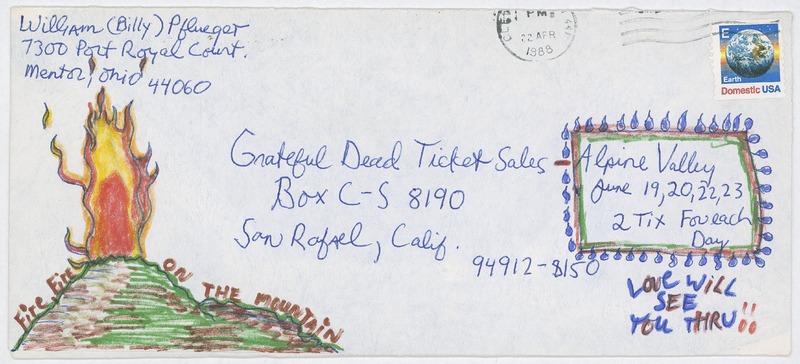 William (Billy) Pflueger
7300 Port Royal Court.
Mentor, Ohio 44060
PM
22 APR
1988
E
Earth
Domestic USA
Grateful Dead Ticket Sales -
Box C-S 8190
San Rafael, Calif.
94912-8150
Alpine Valley
June 19, 20, 22, 23
2 Tix For each
Day
Fire, Fire ON THE MOUNTAIN
LOVE WILL
SEE
YOU THRU!!